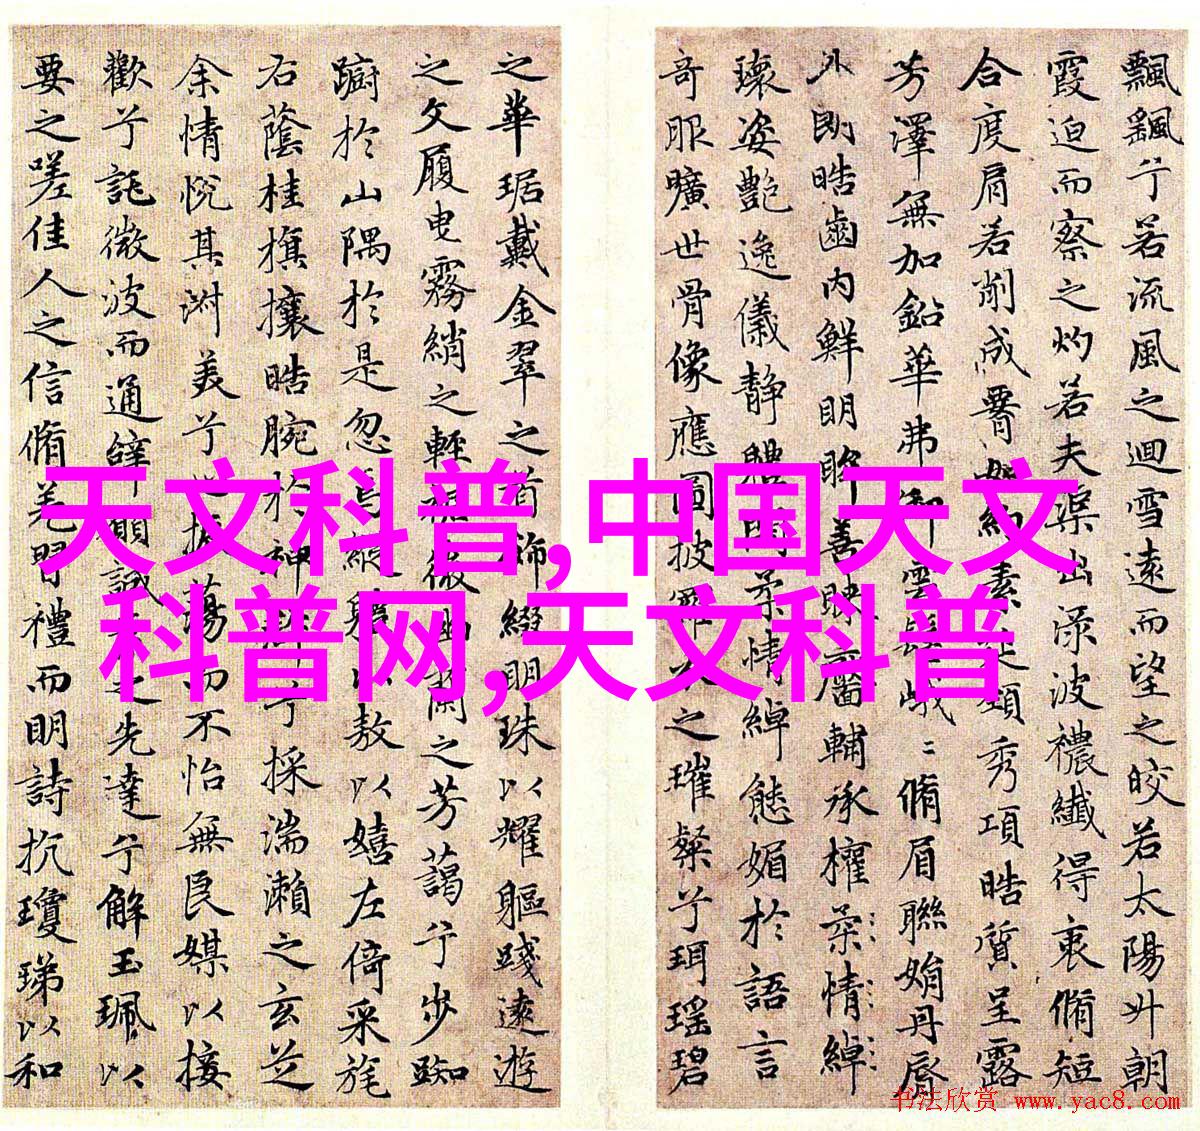 飄飖兮若流風之迴雪遠而望之皎若太陽升朝
霞迫而察之灼若夫渠出淥波襛纖得衷脩短
合度肩若削成如約素延頸秀項皓質呈露
芳澤無加鉛華弗御雲髻峨〻脩眉聯娟丹脣
外朗皓齒内鮮明眸善睞靨輔承權柔情綽
瓌姿艷逸儀静體閑柔情綽態媚於語言
奇服曠世骨像應圖披羅衣之璀粲兮珥瑶碧
之華琚戴金翠之首飾綴明珠以耀軀踐遠遊
之文履曳霧綃之輕裾微幽蘭之芳藹兮步踟
躕於山隅於是忽焉縱軆以敖以嬉左倚采旄
右蔭桂旗攘皓腕於神滸兮採湍瀨之玄芝
余情悅其淑美兮心振蕩而不怡無良媒以接
歡兮託微波而通辭願誠素之先達兮解玉珮以
要之嗟佳人之信脩羌習禮而明詩抗瓊珶以和
天文科普,中国天文
科普网,天文科普
书法欣赏 www.yac8.com